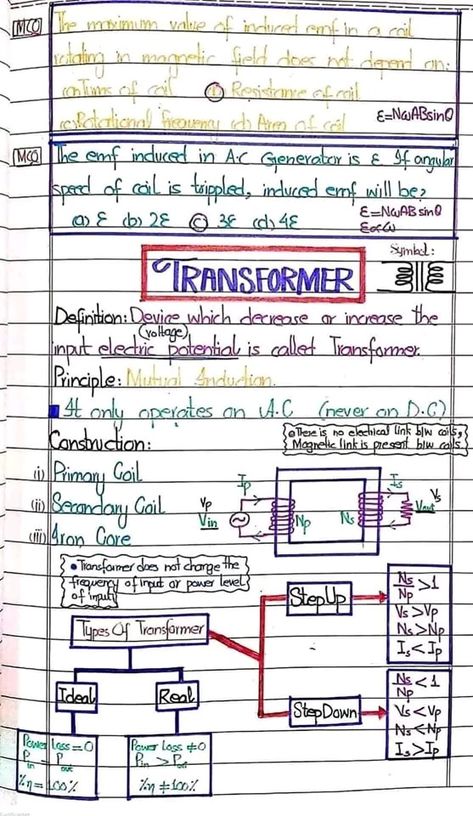 MCQ
The maximum value of induced emf in a coil
rotating in magnetic field does not depend on:
(a)Turns of coil (b) Resistance of coil
(c)Rotational frequency (d) Area of coil
Ɛ=NωABsinθ
MCQ
The emf induced in A.C Generator is Ɛ If angular
speed of coil is trippled, induced emf will be?
(a) Ɛ (b) 2Ɛ (c) 3Ɛ (d) 4Ɛ
Ɛ=NωABsinθ
Ɛ∝ω
TRANSFORMER
Symbol:
Definition: Device which decrease or increase the
(voltage)
input electric potential is called Transformer.
Principle: Mutual Induction.
It only operates on A.C (never on D.C)
Construction:
There is no electrical link b/w coils,
Magnetic link is present b/w coils
(i) Primary Coil
(ii) Secondary Coil
(iii) Iron Core
Ip
Vp
Vin
Np
Ns
Is
Vs
Vout
• Transformer does not change the
frequency of input or power level
of input
Types Of Transformer
Ideal
Real
Power Loss = 0
Pin = Pout
%η = 100%
Power Loss ≠ 0
Pin > Pout
%η ≠ 100%
Step Up
Ns/Np > 1
Vs > Vp
Ns > Np
Is < Ip
Step Down
Ns/Np < 1
Vs < Vp
Ns < Np
Is > Ip